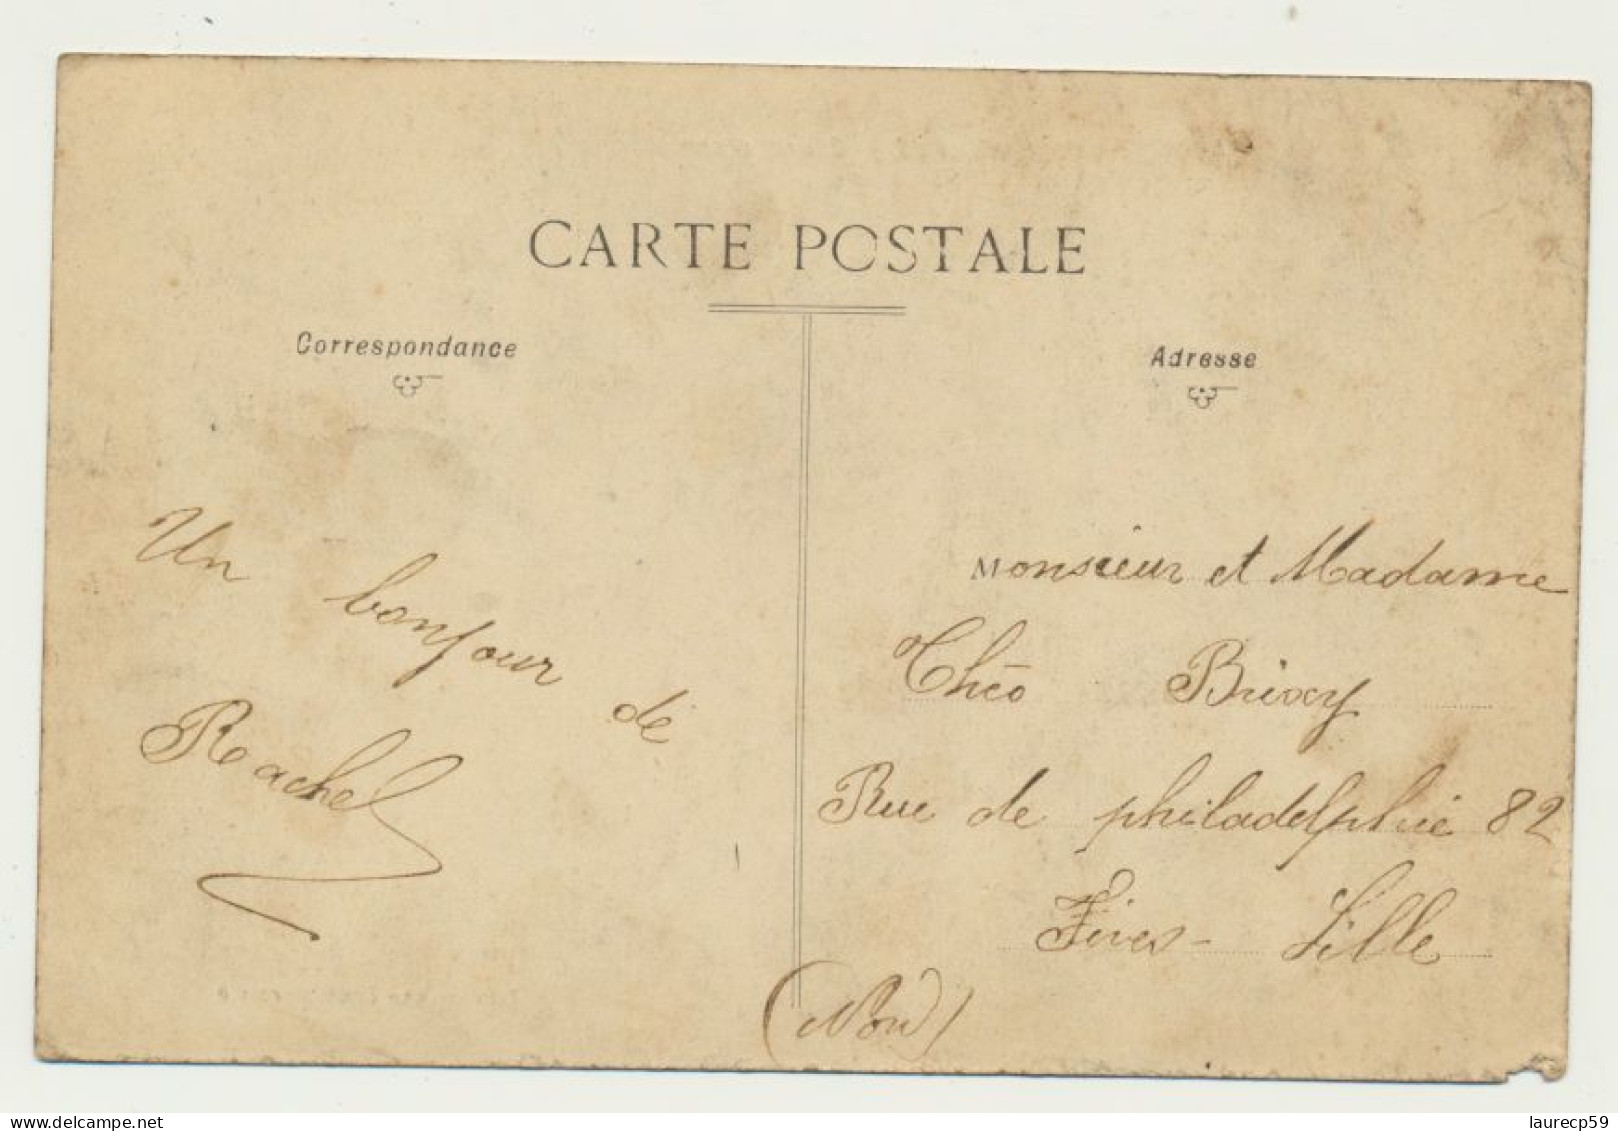 CARTE POSTALE
Correspondance
Adresse
Un bonjour de
Rachel
Monsieur et Madame
Théo
Rue de philadelphie 82
Fives - Lille
(Nord)
delcampe.net
laurecp59